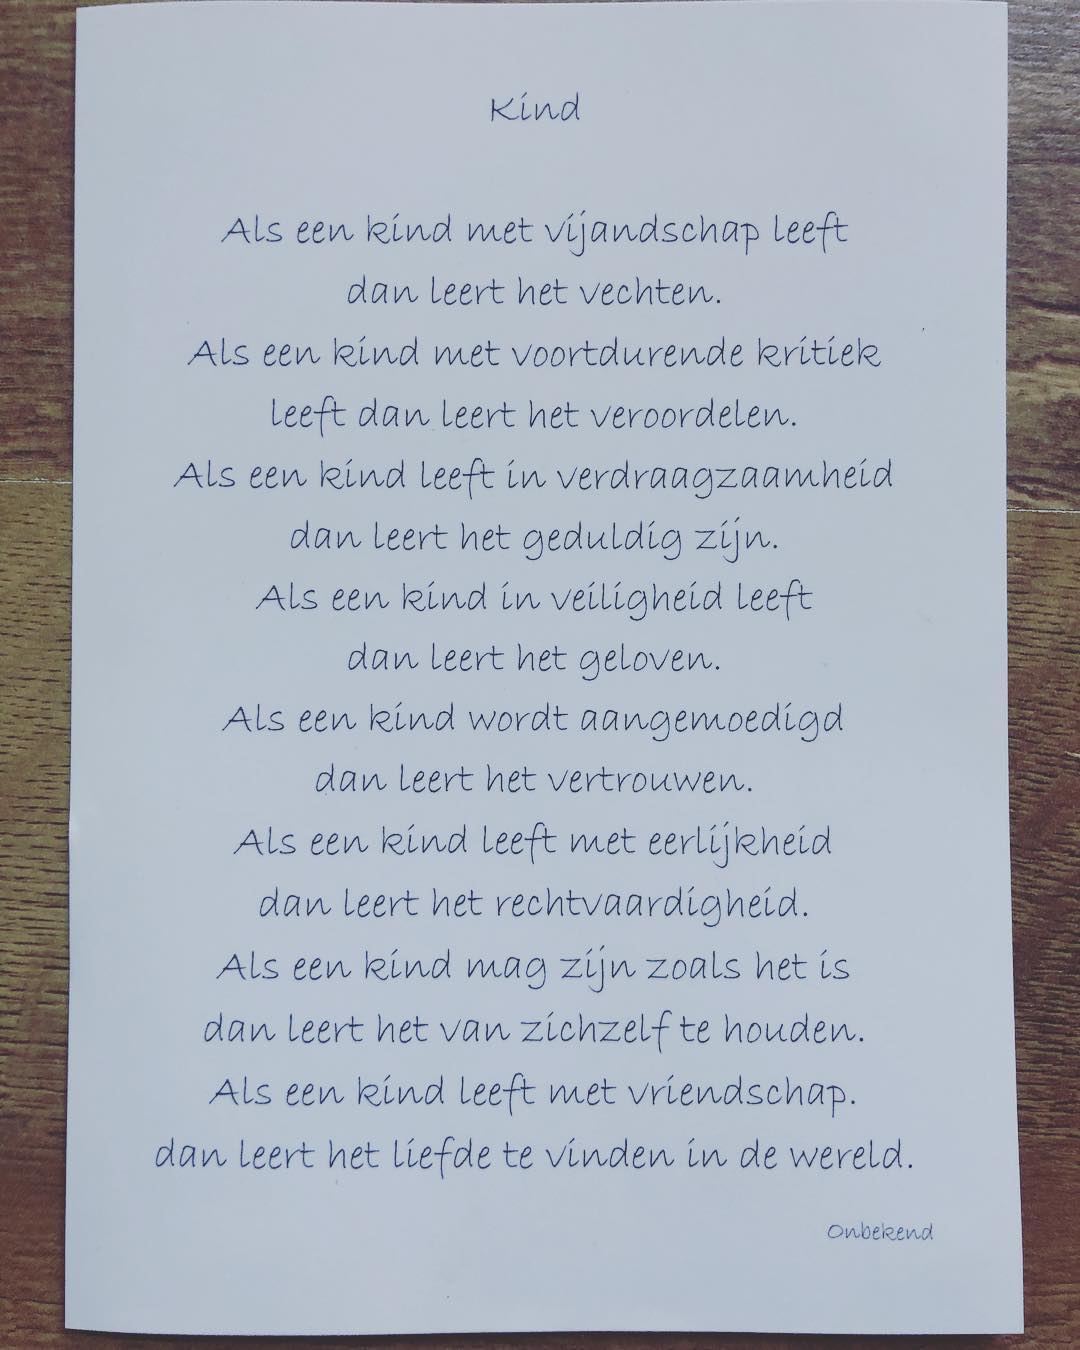 Kind
Als een kind met vijandschap leeft
dan leert het vechten.
Als een kind met voortdurende kritiek
leeft dan leert het veroordelen.
Als een kind leeft in verdraagzaamheid
dan leert het geduldig zijn.
Als een kind in veiligheid leeft
dan leert het geloven.
Als een kind wordt aangemoedigd
dan leert het vertrouwen.
Als een kind leeft met eerlijkheid
dan leert het rechtvaardigheid.
Als een kind mag zijn zoals het is
dan leert het van zichzelf te houden.
Als een kind leeft met vriendschap.
dan leert het liefde te vinden in de wereld.
Onbekend